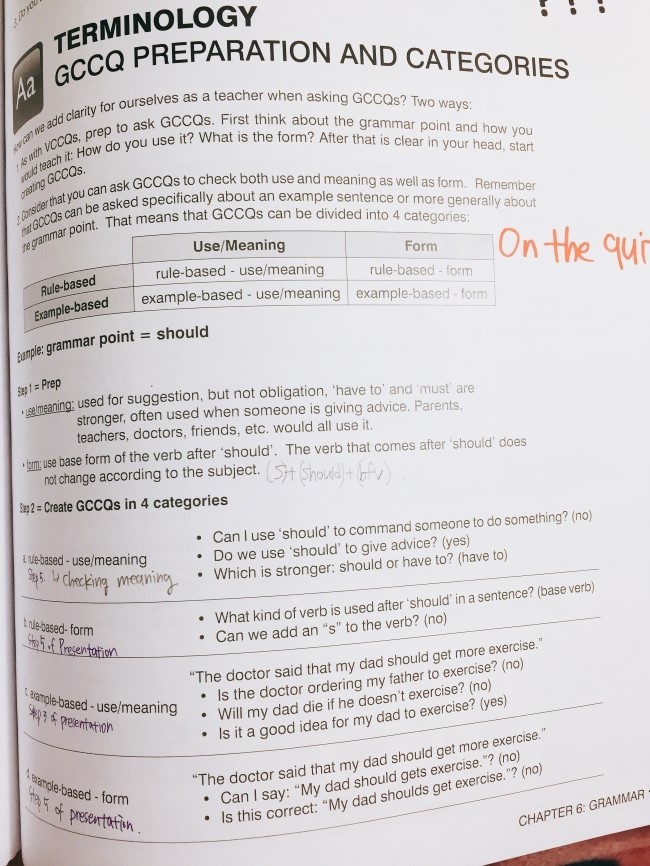 3. Do you
? ? ?
Aa
TERMINOLOGY
GCCQ PREPARATION AND CATEGORIES
How can we add clarity for ourselves as a teacher when asking GCCQs? Two ways:
1. As with VCCQs, prep to ask GCCQs. First think about the grammar point and how you
would teach it: How do you use it? What is the form? After that is clear in your head, start
creating GCCQs.
2. Consider that you can ask GCCQs to check both use and meaning as well as form. Remember
that GCCQs can be asked specifically about an example sentence or more generally about
the grammar point. That means that GCCQs can be divided into 4 categories:
Use/Meaning Form
Rule-based rule-based - use/meaning rule-based - form
Example-based example-based - use/meaning example-based - form
On the qui
Example: grammar point = should
Step 1 = Prep
• use/meaning: used for suggestion, but not obligation, 'have to' and 'must' are
stronger, often used when someone is giving advice. Parents,
teachers, doctors, friends, etc. would all use it.
• form: use base form of the verb after 'should'. The verb that comes after 'should' does
not change according to the subject. (S)+(should)+(bfv).
Step 2 = Create GCCQs in 4 categories
a. rule-based - use/meaning
Step 5. ↳ checking meaning
• Can I use 'should' to command someone to do something? (no)
• Do we use 'should' to give advice? (yes)
• Which is stronger: should or have to? (have to)
b. rule-based- form
Step 5 of Presentation
• What kind of verb is used after 'should' in a sentence? (base verb)
• Can we add an "s" to the verb? (no)
c. example-based - use/meaning
Step 3 of presentation
"The doctor said that my dad should get more exercise."
• Is the doctor ordering my father to exercise? (no)
• Will my dad die if he doesn't exercise? (no)
• Is it a good idea for my dad to exercise? (yes)
d. example-based - form
Step 5 of presentation.
"The doctor said that my dad should get more exercise."
• Can I say: "My dad should gets exercise."? (no)
• Is this correct: "My dad shoulds get exercise."? (no)
CHAPTER 6: GRAMMAR